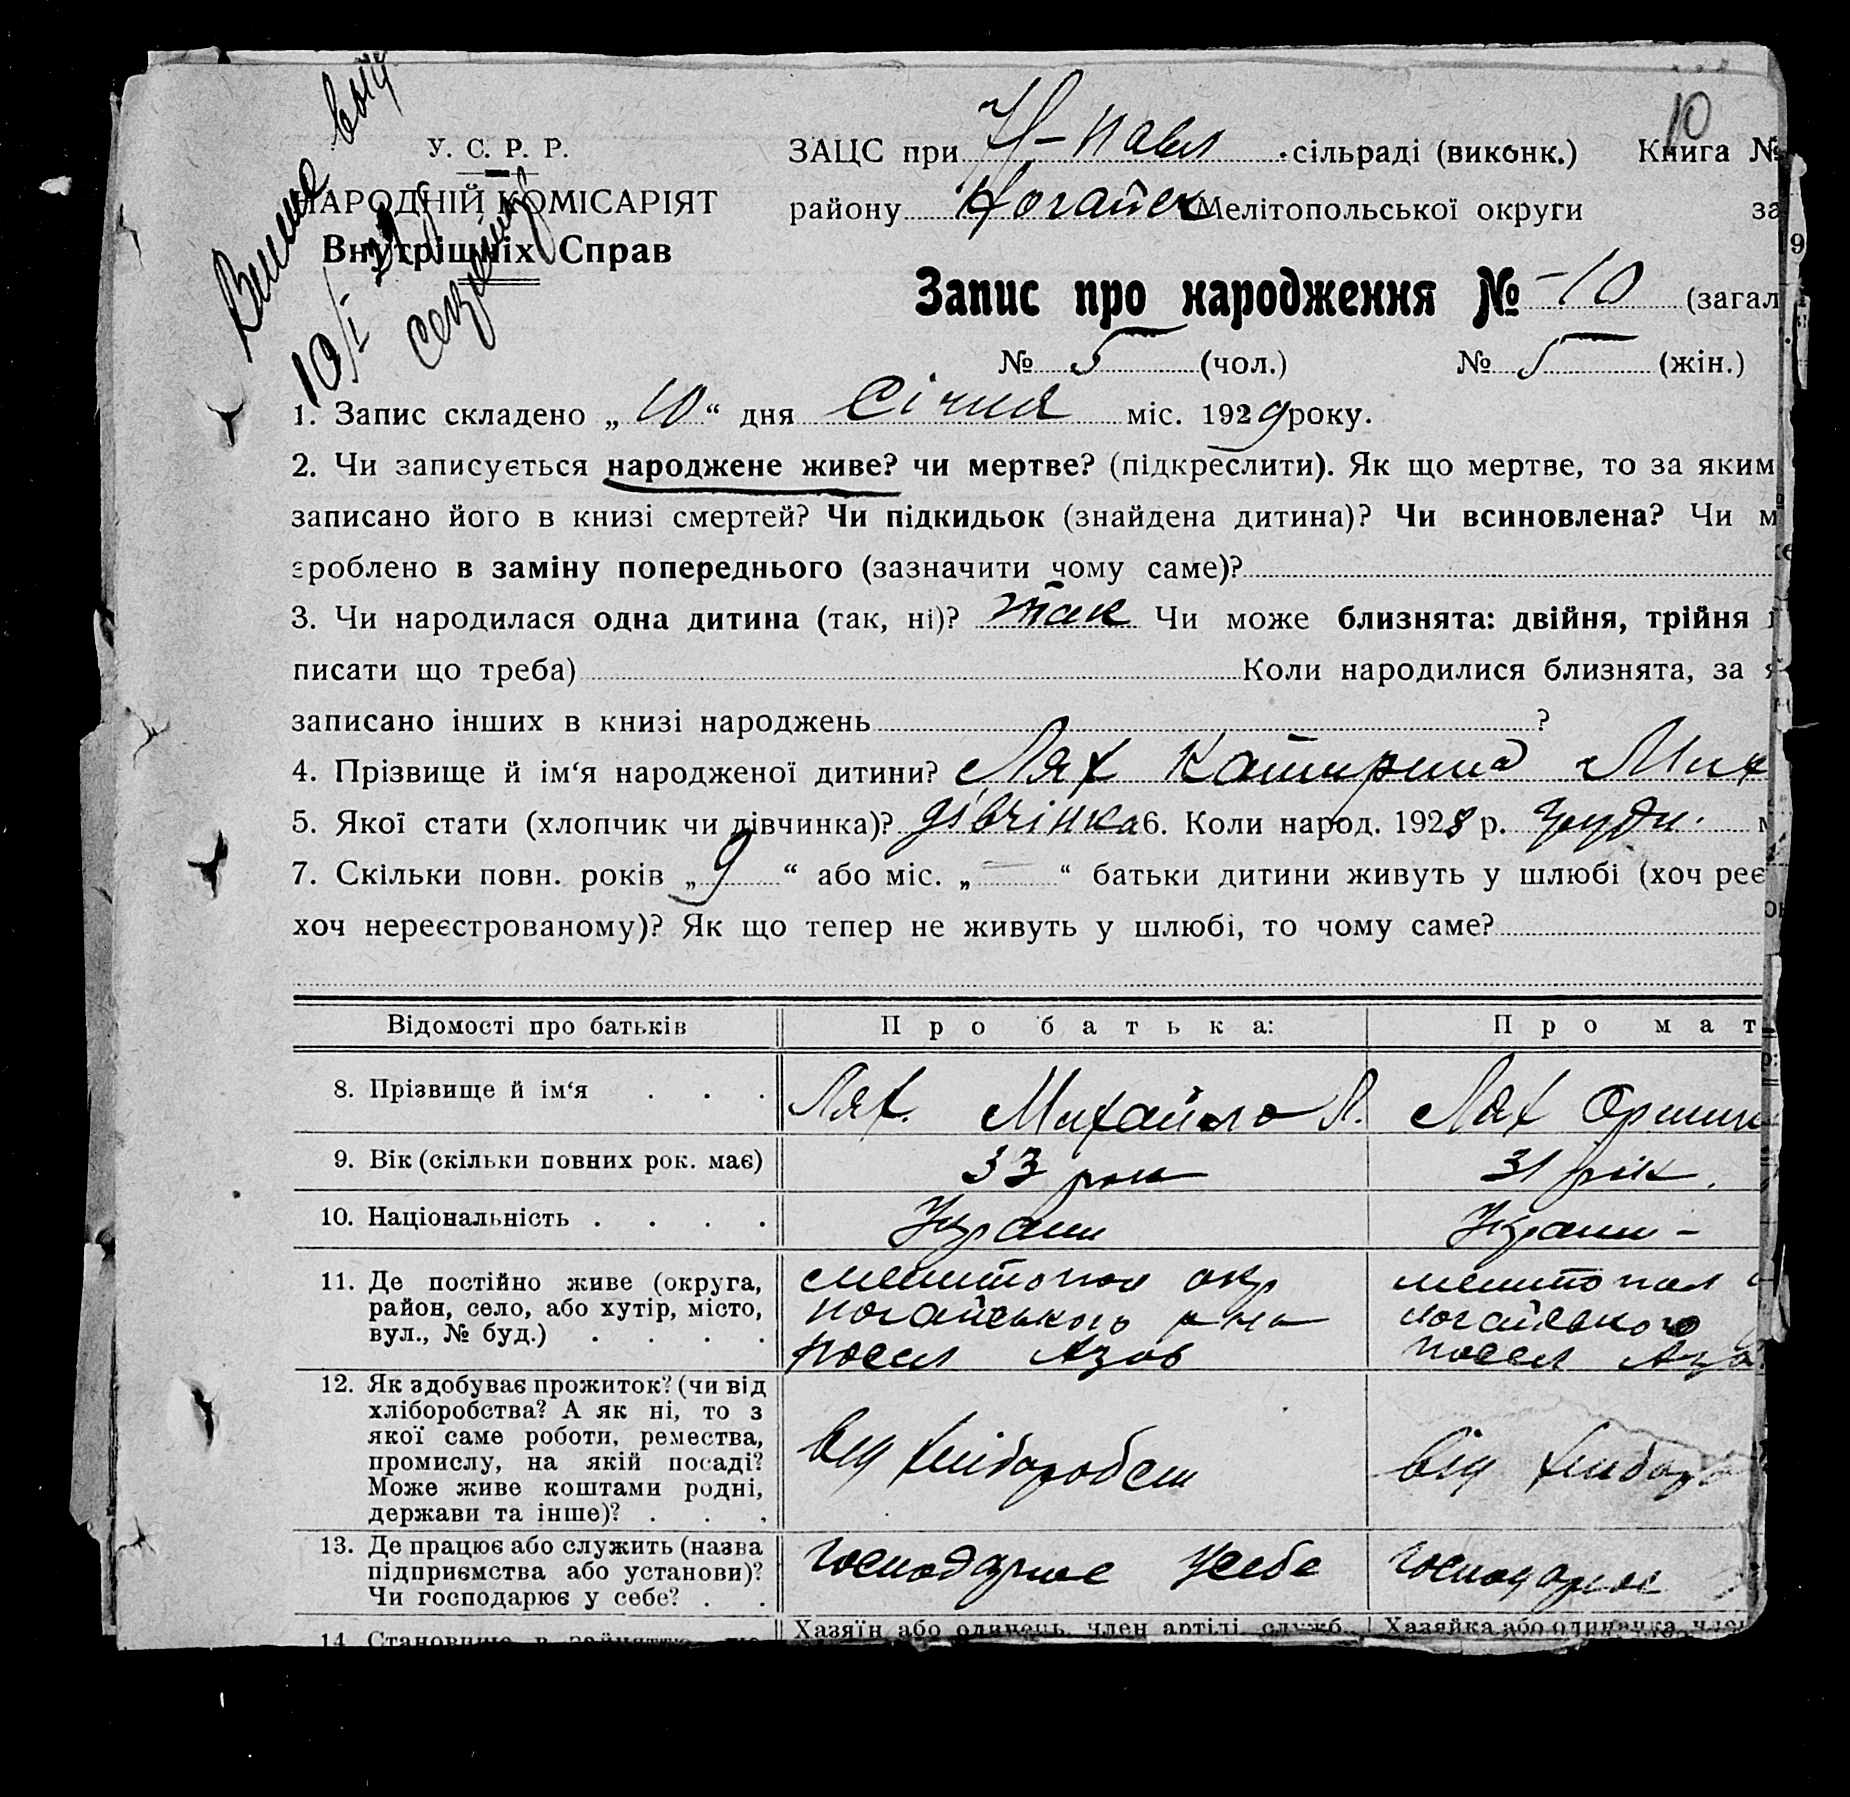 10
У. С. Р. Р.
НАРОДНІЙ КОМІСАРІЯТ
Внутрішніх Справ
ЗАЦС при Н-павл сільраді (виконк.) Книга №
району Ногайск Мелітопольської округи за
Запис про народження № -10 (загал
№ 5 (чол.) № 5 (жін.)
1. Запис складено „ 10 “ дня Січня міс. 1929 року.
2. Чи записується народжене живе? чи мертве? (підкреслити). Як що мертве, то за яким
записано його в книзі смертей? Чи підкидьок (знайдена дитина)? Чи всиновлена? Чи м
зроблено в заміну попереднього (зазначити чому саме)?
3. Чи народилася одна дитина (так, ні)? так Чи може близнята: двійня, трійня
писати що треба) Коли народилися близнята, за я
записано інших в книзі народжень ?
4. Прізвище й ім‘я народженої дитини? Лях Катирина Мих
5. Якої стати (хлопчик чи дівчинка)? дівчінка 6. Коли народ. 1928 р. груди.
7. Скільки повн. років „ 9 “ або міс. „ — “ батьки дитини живуть у шлюбі (хоч реє
хоч нереєстрованому)? Як що тепер не живуть у шлюбі, то чому саме?
Відомості про батьків Про батька: Про мат
8. Прізвище й ім‘я . . . Лях. Михайло П. Лях Орини
9. Вік (скільки повних рок. має) 33 роки 31 рік.
10. Національність . . . . Украин Украин -
11. Де постійно живе (округа, мелитопол окр мелитопол
район, село, або хутір, місто, ногайського р-на ногайського
вул., № буд.) . . . . посел Азов посел Азо
12. Як здобуває прожиток? (чи від
хліборобства? А як ні, то з
якої саме роботи, ремества, від хліборобсти від хлибор
промислу, на якій посаді?
Може живе коштами родні,
держави та інше)? . . .
13. Де працює або служить (назва господарює усебе господарює
підприємства або установи)?
Чи господарює у себе? . .
14. Становище в занятт Хазяїн або одинець, член артілі, служб. Хазяйка або одиначка, член